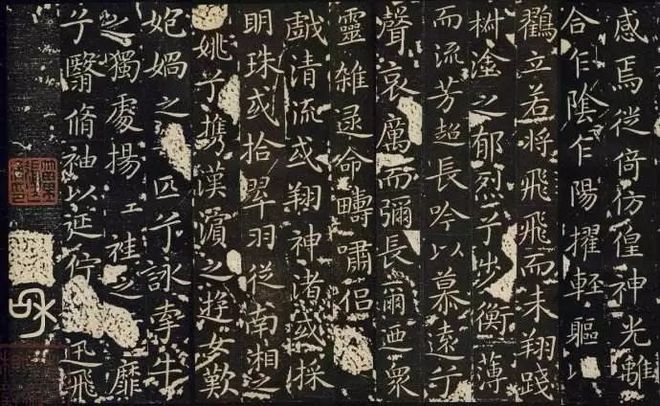 感焉徙倚彷徨神光離
合乍陰乍陽擢輕軀以
鸛立若將飛飛而未翔踐
椒塗之郁烈兮步衡薄
而流芳超長吟以慕遠兮
聲哀厲而彌長爾迺眾
靈雜遝命疇嘯侶
戲清流或翔神渚或採
明珠或拾翠羽從南湘之
姚兮攜漢濱之遊女歎
妃媧之匹兮詠牽牛
之獨處揚袿之靡
兮翳脩袖以延佇迅飛